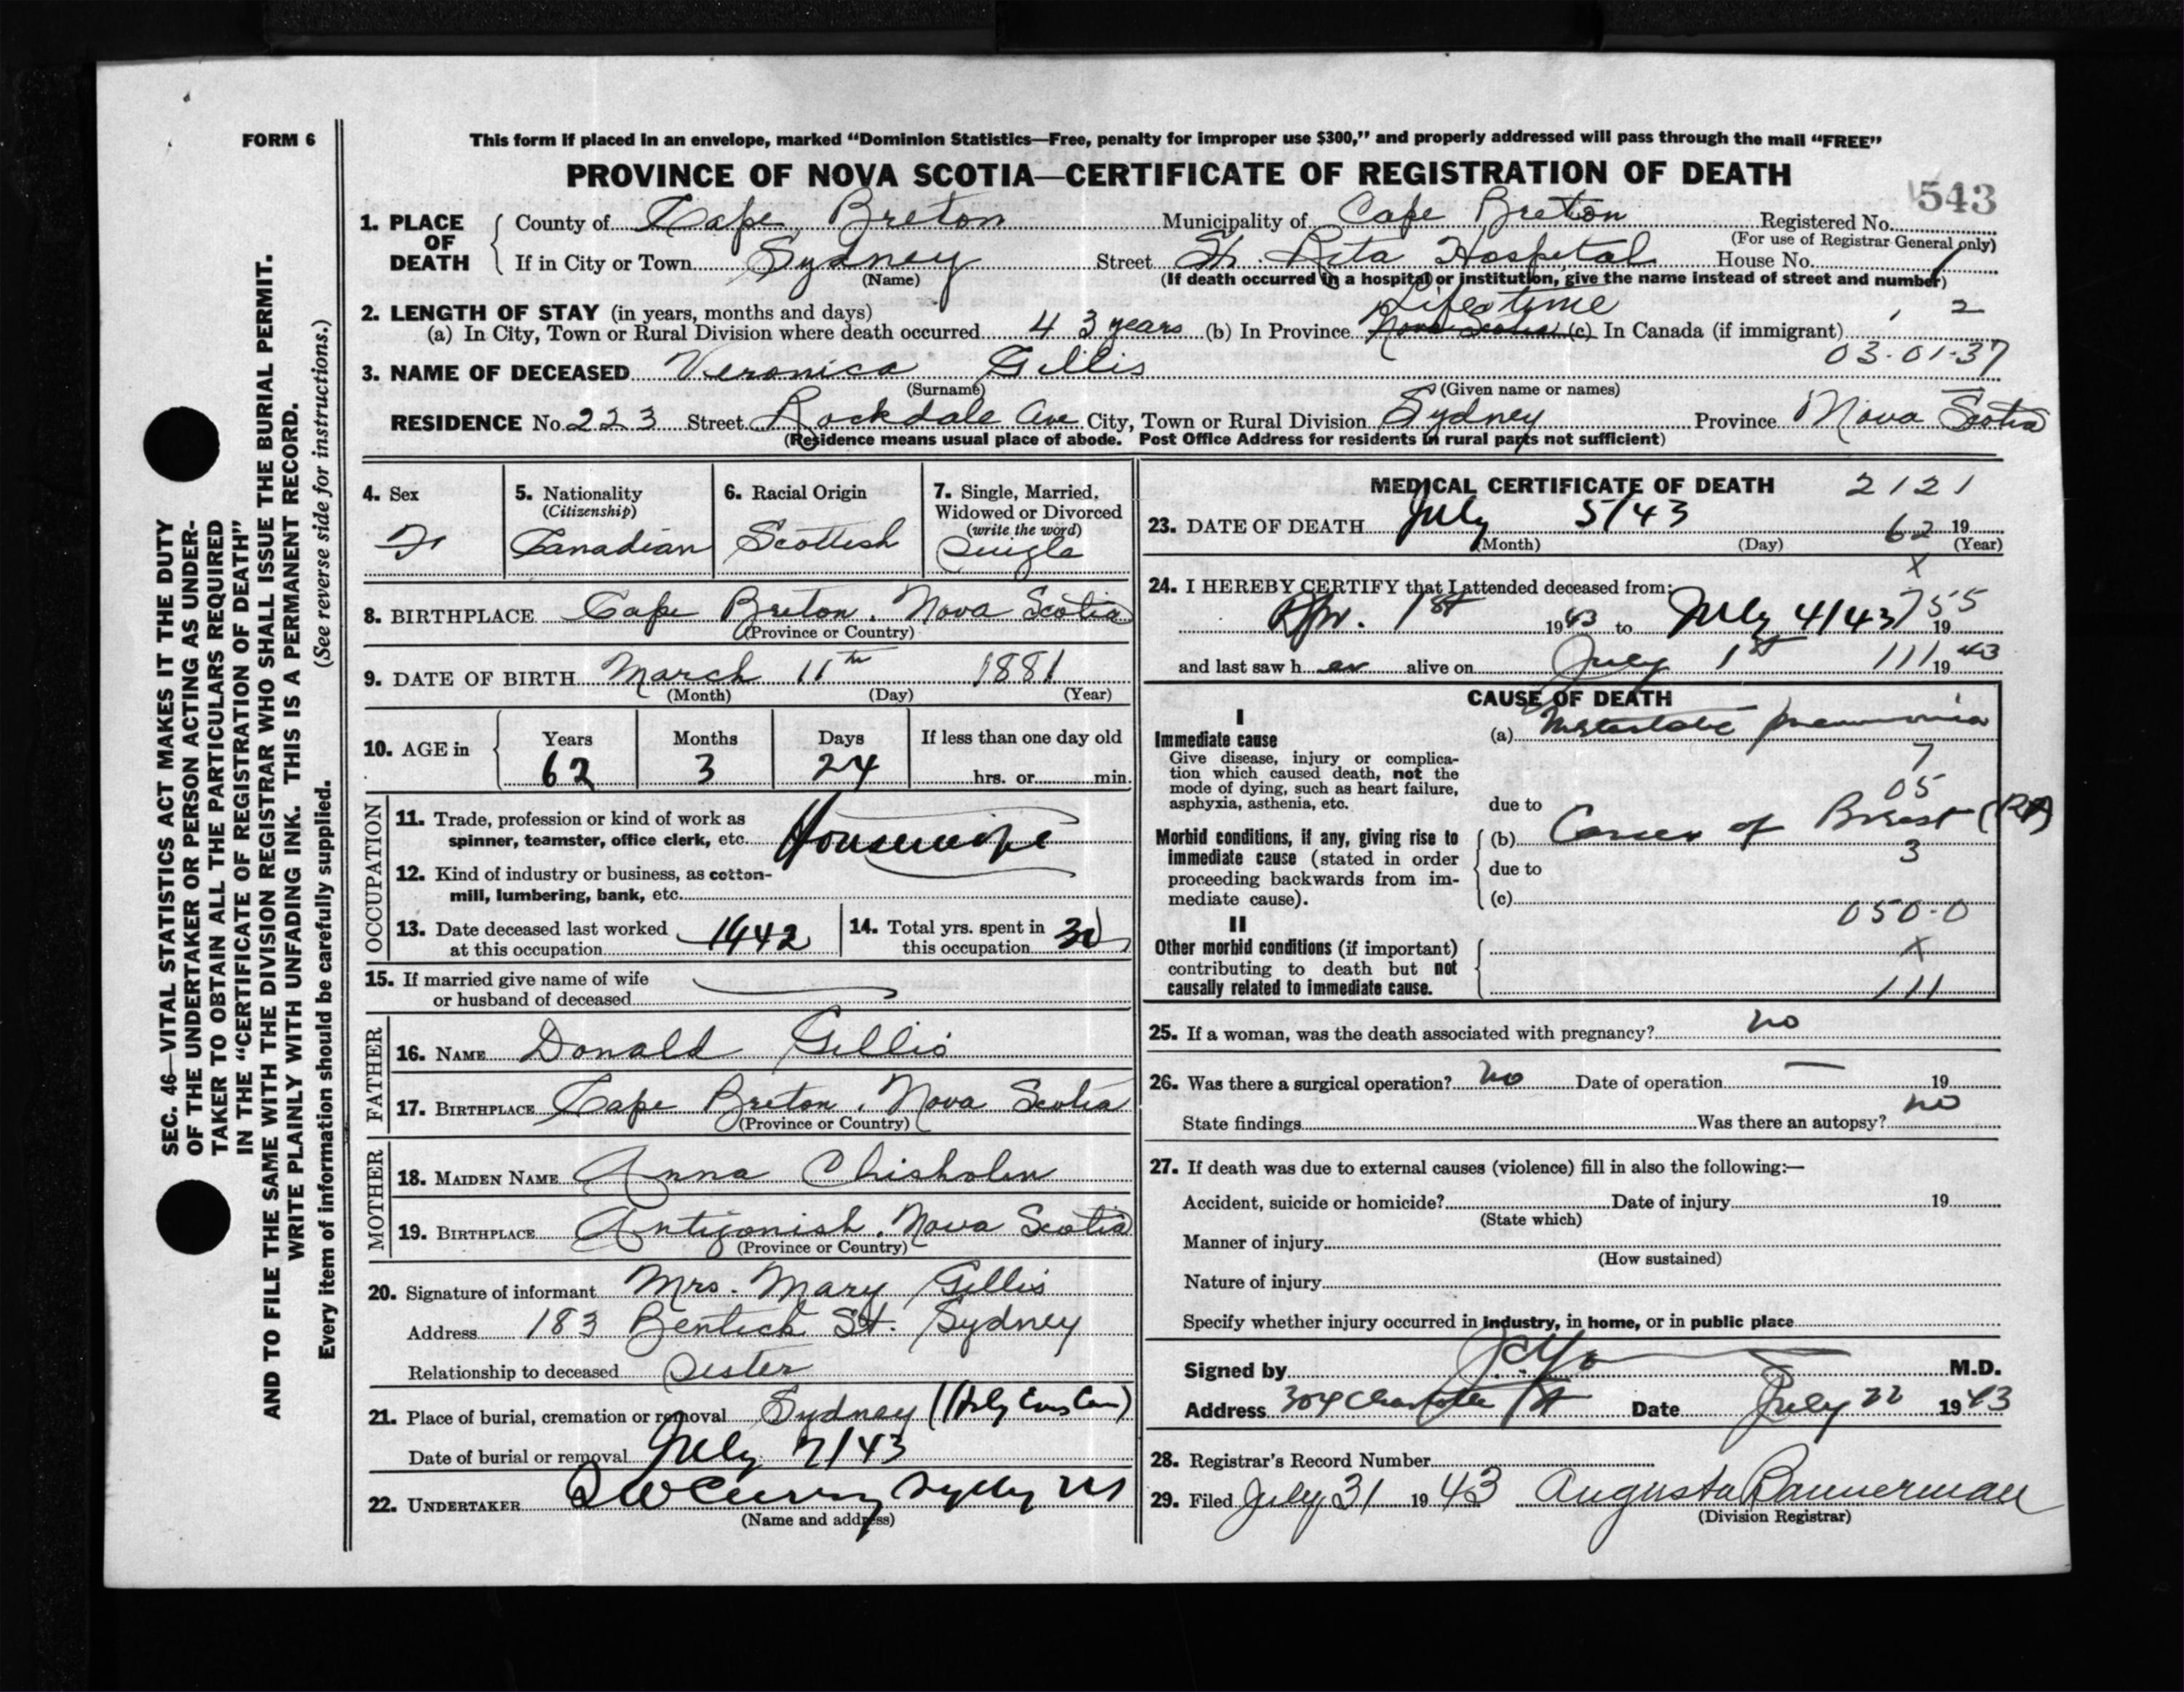 FORM 6
This form if placed in an envelope, marked "Dominion Statistics—Free, penalty for improper use $300," and properly addressed will pass through the mail "FREE"
PROVINCE OF NOVA SCOTIA—CERTIFICATE OF REGISTRATION OF DEATH
543
1. PLACE OF DEATH County of Cape Breton Municipality of Cape Breton Registered No.
(For use of Registrar General only)
If in City or Town Sydney Street St. Rita Hospital House No.
(Name) (If death occurred in a hospital or institution, give the name instead of street and number)
2. LENGTH OF STAY (in years, months and days) Lifetime
(a) In City, Town or Rural Division where death occurred 43 years (b) In Province Nova Scotia (c) In Canada (if immigrant) 2
03-01-37
3. NAME OF DECEASED Veronica Gillis
(Surname) (Given name or names)
RESIDENCE No. 223 Street Rockdale Ave City, Town or Rural Division Sydney Province Nova Scotia
(Residence means usual place of abode. Post Office Address for residents in rural parts not sufficient)
4. Sex F
5. Nationality (Citizenship) Canadian
6. Racial Origin Scottish
7. Single, Married, Widowed or Divorced (write the word) Single
8. BIRTHPLACE Cape Breton, Nova Scotia
(Province or Country)
9. DATE OF BIRTH March 11th 1881
(Month) (Day) (Year)
10. AGE in Years Months Days If less than one day old
62 3 24 hrs. or min.
OCCUPATION
11. Trade, profession or kind of work as spinner, teamster, office clerk, etc. Housewife
12. Kind of industry or business, as cotton-mill, lumbering, bank, etc.
13. Date deceased last worked at this occupation 1942
14. Total yrs. spent in this occupation 30
15. If married give name of wife or husband of deceased
FATHER
16. NAME Donald Gillis
17. BIRTHPLACE Cape Breton, Nova Scotia
(Province or Country)
MOTHER
18. MAIDEN NAME Anna Chisholm
19. BIRTHPLACE Antigonish, Nova Scotia
(Province or Country)
20. Signature of informant Mrs. Mary Gillis
Address 183 Bentick St. Sydney
Relationship to deceased Sister
21. Place of burial, cremation or removal Sydney
Date of burial or removal July 7/43
22. UNDERTAKER
(Name and address)
MEDICAL CERTIFICATE OF DEATH 2121
23. DATE OF DEATH July 5/43 62 19
(Month) (Day) (Year)
x
24. I HEREBY CERTIFY that I attended deceased from:
Apr. 1st 1943 to July 4/43 755 19
and last saw her alive on July 1st 111 1943
CAUSE OF DEATH
I
Immediate cause (a) Metastatic pneumonia
Give disease, injury or complication which caused death, not the mode of dying, such as heart failure, asphyxia, asthenia, etc.
7
05
due to
Morbid conditions, if any, giving rise to immediate cause (stated in order proceeding backwards from immediate cause).
(b) Cancer of Breast (Rt)
3
due to
(c)
050-0
II
Other morbid conditions (if important) contributing to death but not causally related to immediate cause.
x
111
25. If a woman, was the death associated with pregnancy? no
26. Was there a surgical operation? no Date of operation — 19
State findings Was there an autopsy? no
27. If death was due to external causes (violence) fill in also the following:—
Accident, suicide or homicide? Date of injury 19
(State which)
Manner of injury
(How sustained)
Nature of injury
Specify whether injury occurred in industry, in home, or in public place
Signed by M.D.
Address 304 Charlotte St Date July 22 1943
28. Registrar's Record Number
29. Filed July 31 1943 Augusta Bannerman
(Division Registrar)
SEC. 46—VITAL STATISTICS ACT MAKES IT THE DUTY
OF THE UNDERTAKER OR PERSON ACTING AS UNDER-
TAKER TO OBTAIN ALL THE PARTICULARS REQUIRED
IN THE "CERTIFICATE OF REGISTRATION OF DEATH"
AND TO FILE THE SAME WITH THE DIVISION REGISTRAR WHO SHALL ISSUE THE BURIAL PERMIT.
WRITE PLAINLY WITH UNFADING INK. THIS IS A PERMANENT RECORD.
Every item of information should be carefully supplied. (See reverse side for instructions.)